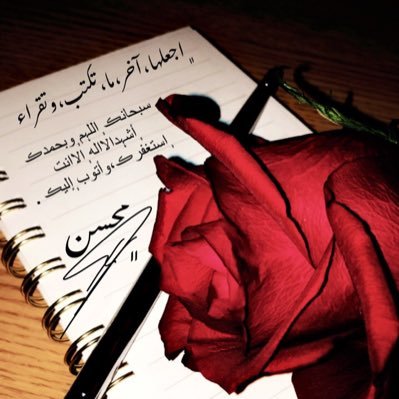 اجعلها، آخر، ما، تكتب، وتقراء
سبحانك اللهم وبحمدك
أشهد الا اله الا انت
استغفرك، واتوب إليك.
محسن